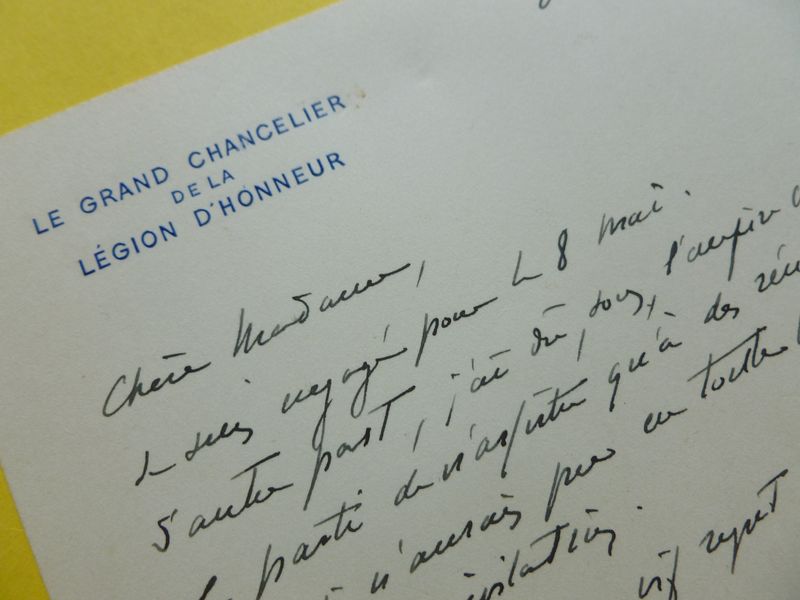 LE GRAND CHANCELIER
DE LA
LÉGION D'HONNEUR
Chère Madame,
Je suis engagé pour le 8 mai.
D'autre part, j'ai dû, sous
parti de n'assister qu'à des
n'aurais pu en toute
vif regret